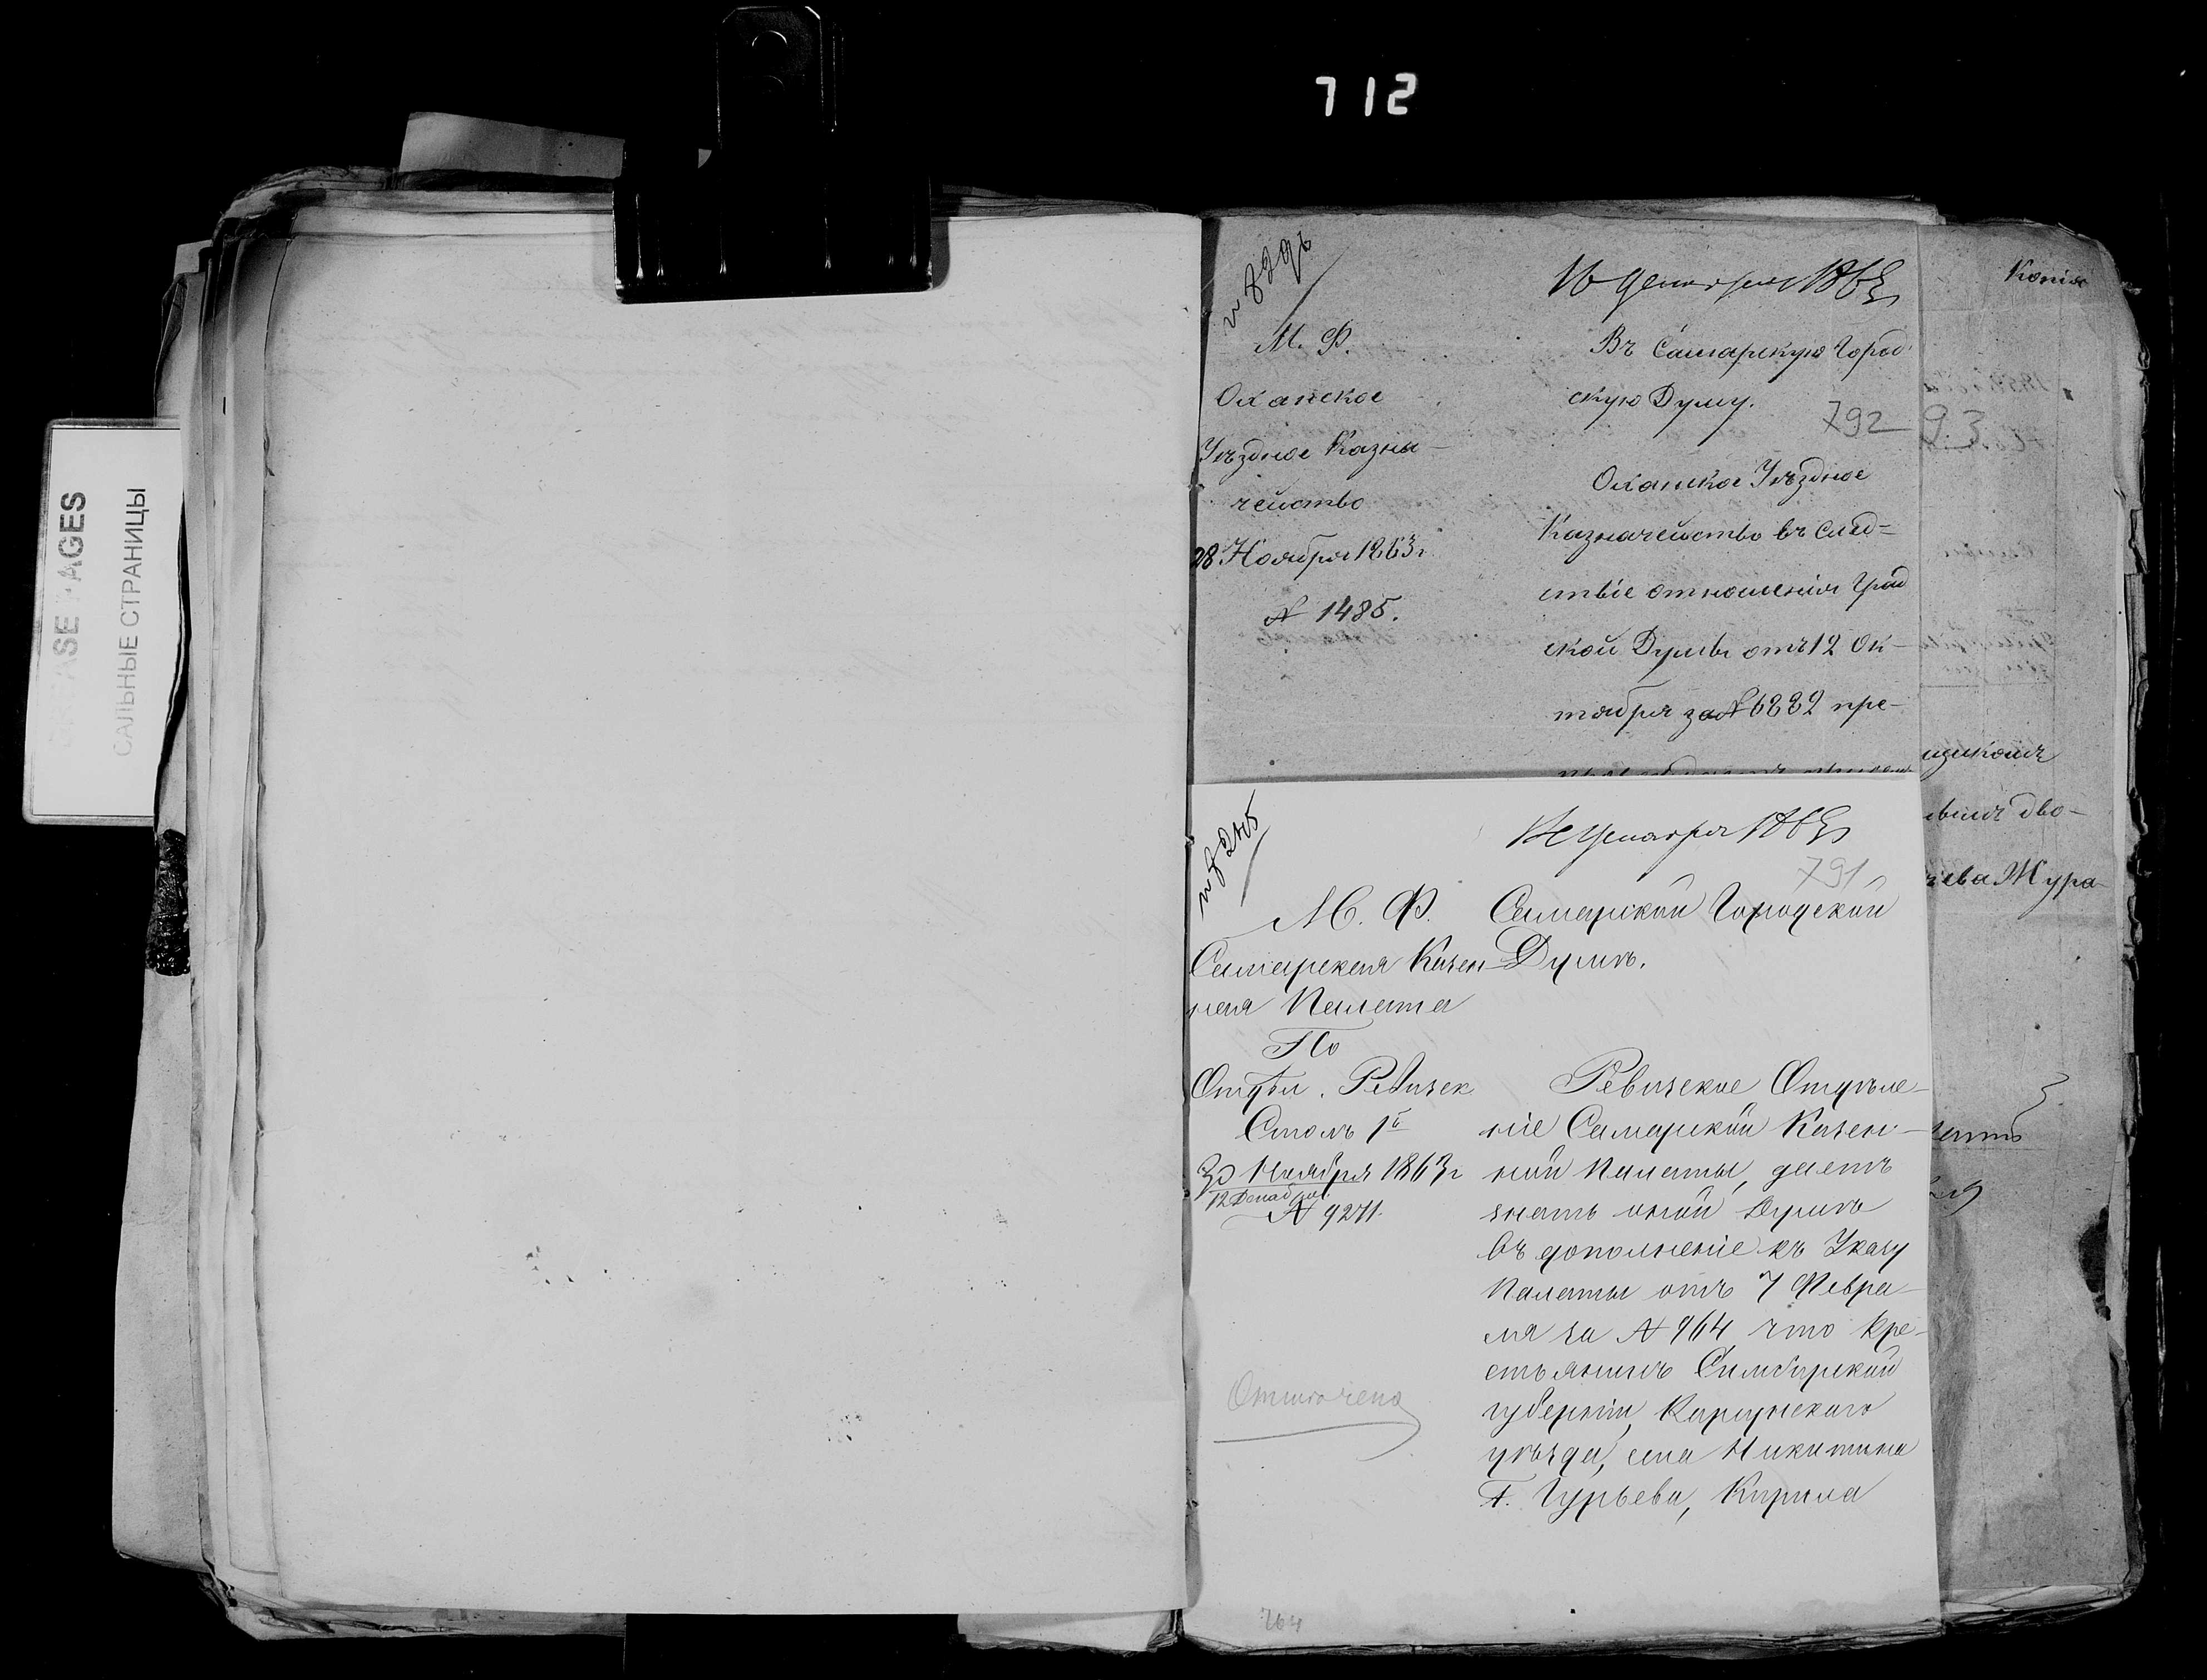 712
САЛЬНЫЕ СТРАНИЦЫ
AGES
16 Декабря 1863
М. Ф.
Оханское
Уѣздное Казна-
чейство
28 Ноября 1863 г
№ 1485.
Въ Самарскую Город-
скую Думу.
792
Оханское Уѣздное
Казначейство въ слѣд-
ствіе отношенія Град
ской Думы отъ 12 Ок-
тября за № 6882 пре-
Копія
93
щикомъ
дво-
ева Жура
Декабря 1863
791
М. Ф.
Самарская Казен-
ная Палата
По
Отдѣл. Ревизск
Столъ 1й
30 Ноября 1863 г
12 Декабря
№ 9271.
Отмѣчено
Самарской Городской
Думѣ.
Ревизское Отдѣле-
ніе Самарской Казен-
ной Палаты, даетъ
знать оной Думѣ
въ дополненіе къ Указу
Палаты отъ 7 Февра-
ля за № 964 что кре-
стьянинъ Симбирской
губерніи, Карсунскаго
уѣзда, села Никитина
Г. Гурьева, Кирила
764